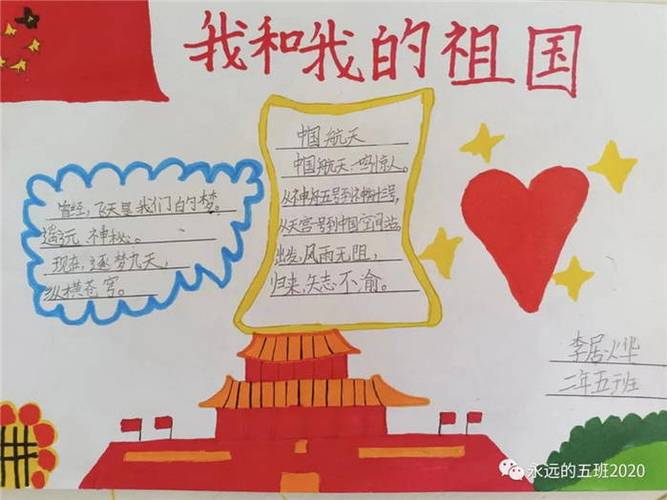 我和我的祖国
中国航天
中国航天,一鸣惊人。
从神舟五号到神舟十三号,
从天宫号到中国空间站,
出发,风雨无阻,
归来,矢志不渝。
曾经,飞天是我们的梦。
遥远,神秘。
现在,逐梦九天,
纵横苍穹。
李居烨
二年五班
永远的五班2020